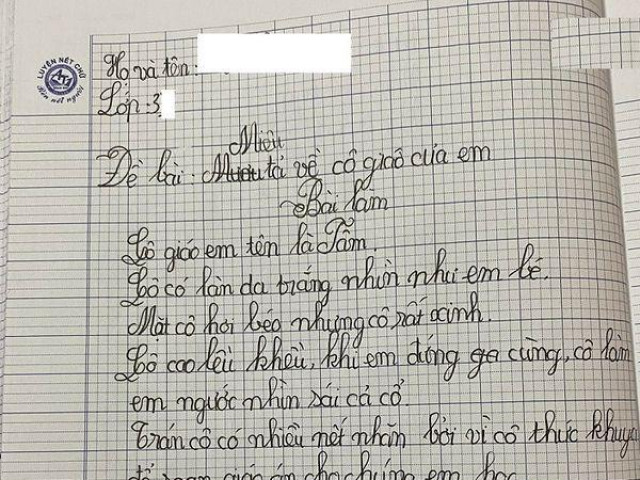 LUYỆN NÉT CHỮ
Rèn nết người
Họ và tên:
Lớp: 3
Miêu
Đề bài: tả về cô giáo của em
Bài làm
Cô giáo em tên là Tâm.
Cô có làn da trắng nhìn như em bé.
Mặt cô hơi béo nhưng cô rất xinh.
Cô cao lêu khêu, khi em đứng ga cùng, cô làm
em ngước nhìn sái cả cổ.
Trán cô có nhiều nết nhăn bởi vì cô thức khuya
để soạn giáo án cho chúng em học